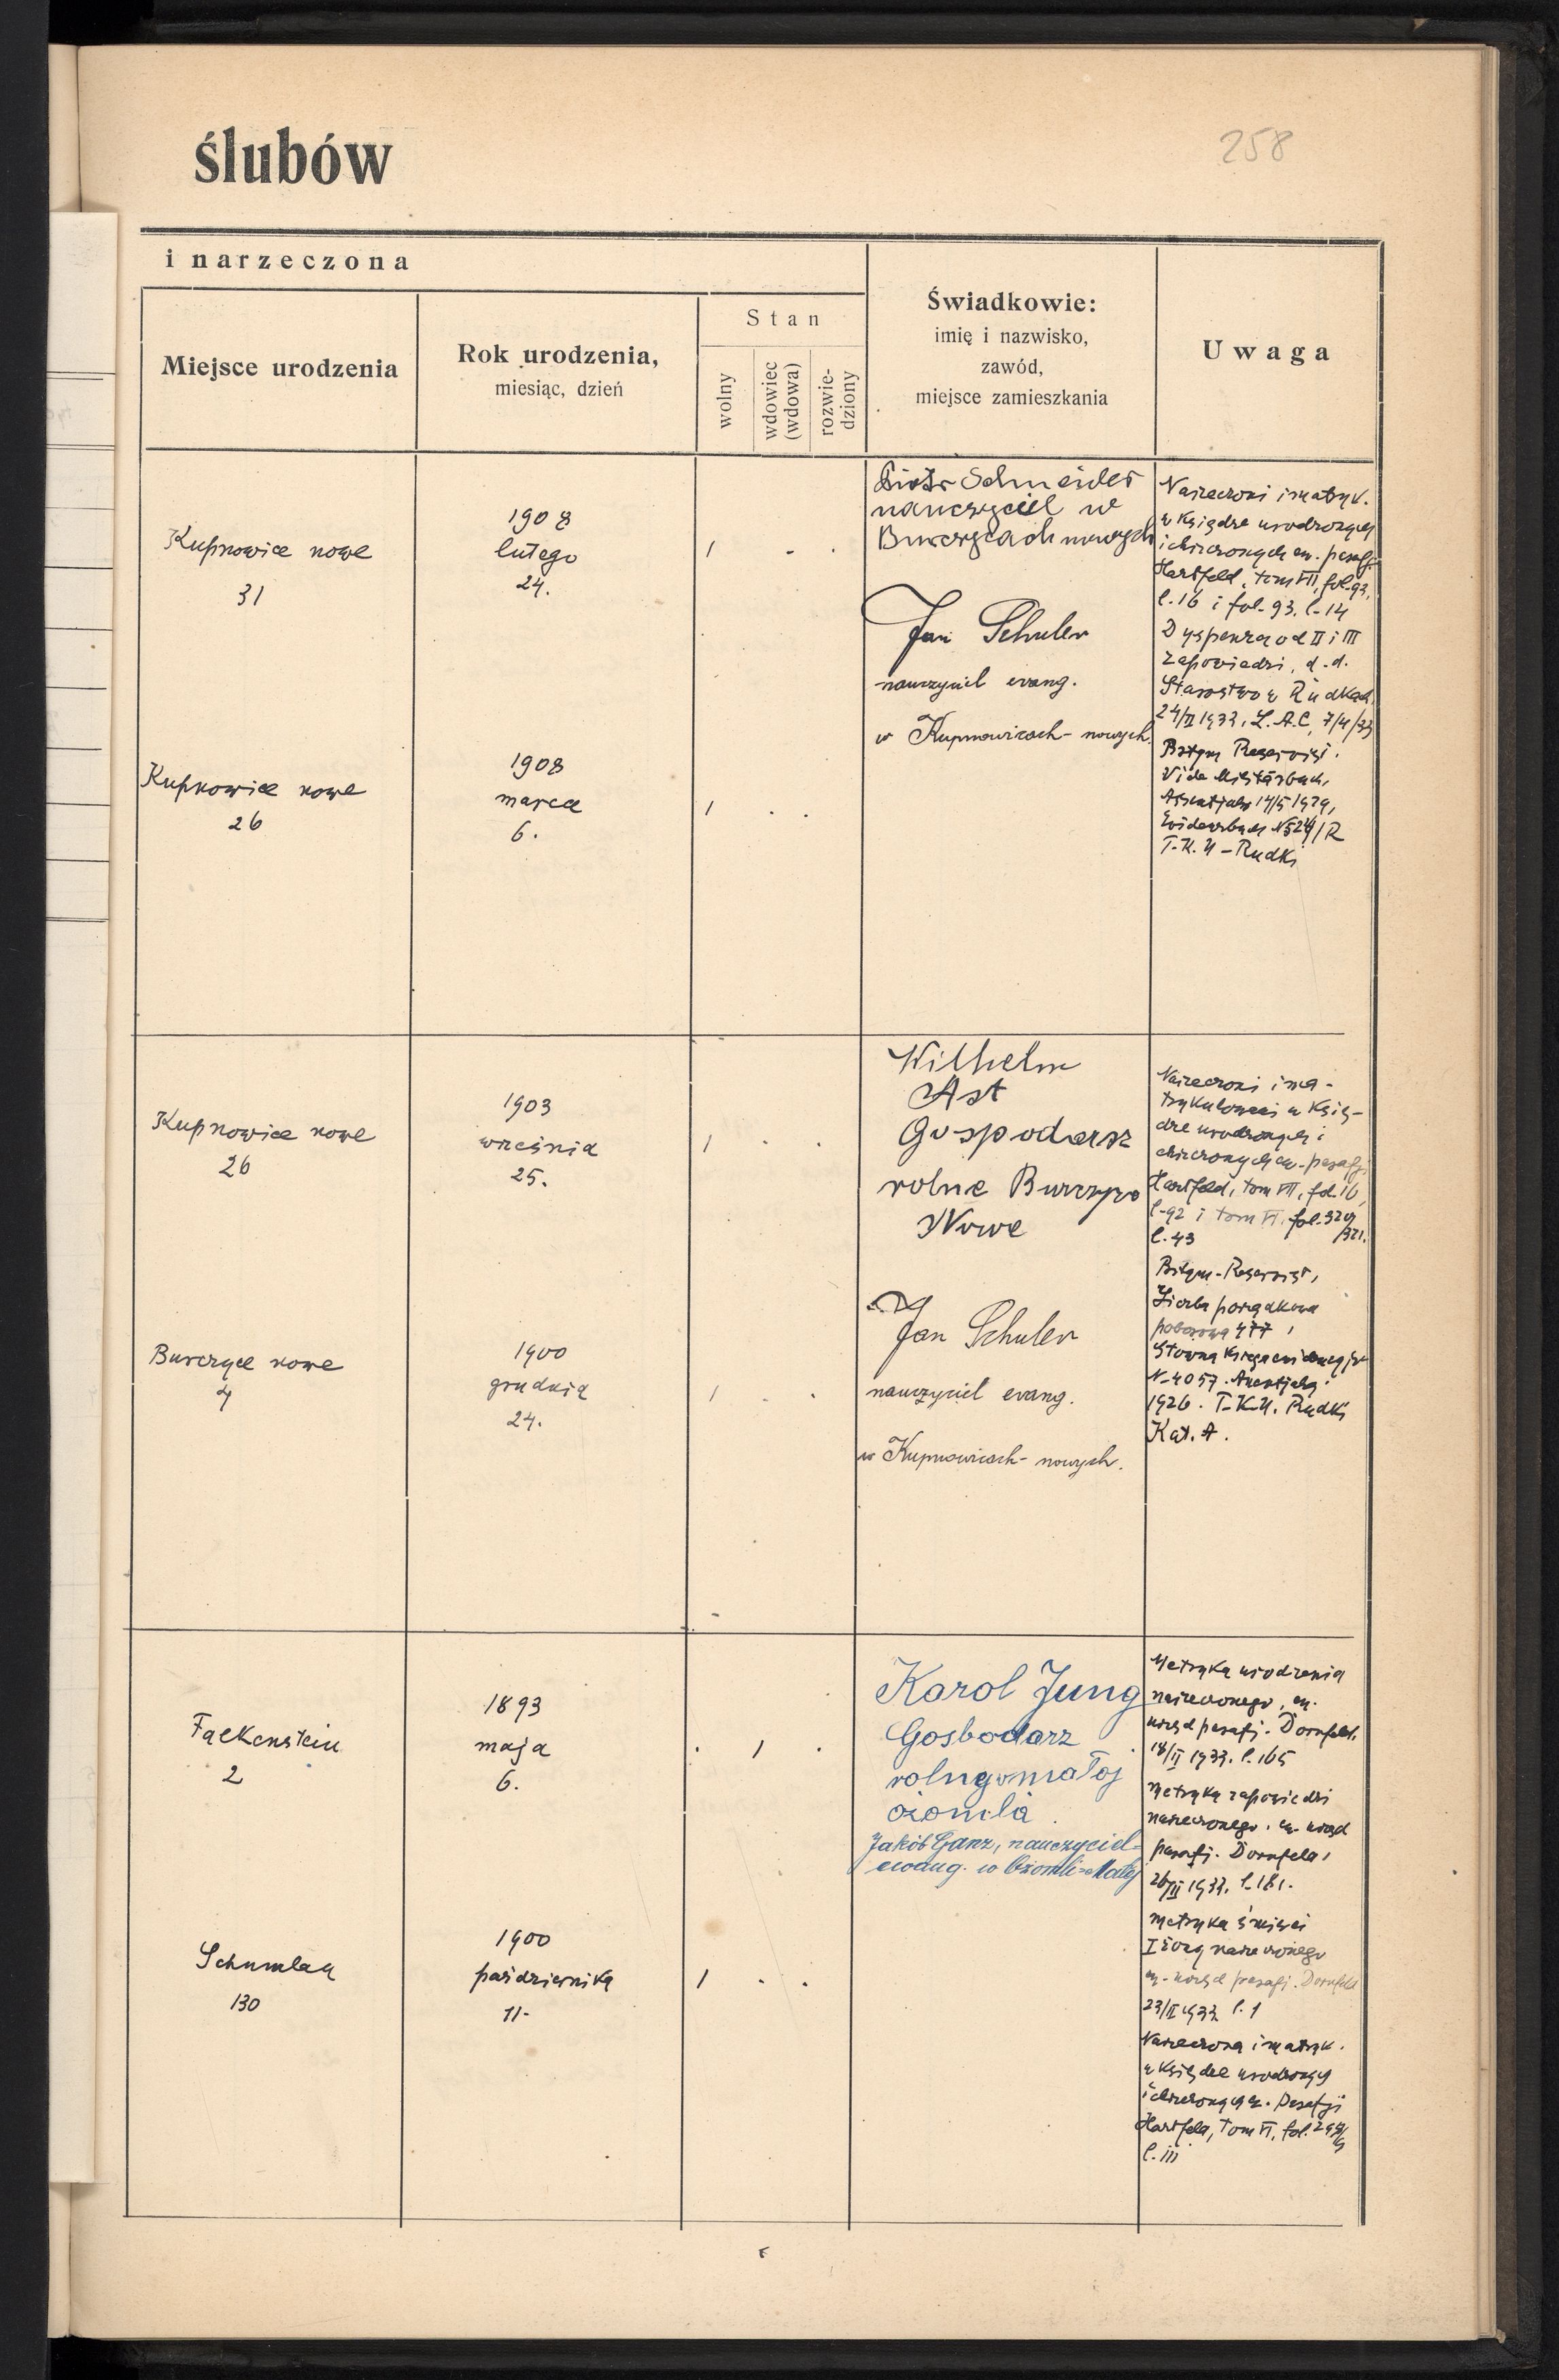 ślubów
258
i narzeczona
Miejsce urodzenia
Rok urodzenia,
miesiąc, dzień
Stan
wolny
wdowiec
(wdowa)
rozwie-
dziony
Świadkowie:
imię i nazwisko,
zawód,
miejsce zamieszkania
Uwaga
Kupnowice nowe
31
1908
lutego
24.
1
Piotr Schneider
nauczyciel w
Burczycach nowych
Jan Schuler
nauczyciel evang.
w Kupnowicach-nowych.
Narzeczoni imatryk.
w Księdze urodzonych
i chrzczonych ew. parafj.
Hartfeld, tom VII, fol. 93,
l. 16 i fol. 93. l. 14
Dyspenza od II i III
zapowiedzi, d.d.
Starostwo w Rudkach
24/II 1933. L. A.C. 7/4/33
Kupnowice nowe
26
1908
marca
6.
1
Bräutgm Reservist.
Vide Militärbuch,
14/5 1929,
N 524/R
T.K.U - Rudki
Kupnowice nowe
26
1903
września
25.
1
Wilhelm
Ast
Gospodarz
rolne Burczyce
Nowe
Jan Schuler
nauczyciel evang.
w Kupnowicach-nowych.
Narzeczoni ima-
trykulowani w Księ-
dze urodzonych i
chrzczonych ew. parafj.
Hartfeld, tom VII, fol. 16,
l. 92 i tom VI, fol. 320/
321.
l. 43
Burczyce nowe
4
1900
grudnia
24.
1
Reservist,
Liczba porządkowa
poborowa 477,
Główna Księga ewidencyjna
N. 4057.
1926. T.K.U. Rudki
Kat. A.
Falkenstein
2
1893
maja
6.
1
Karol Jung
Gosbodarz
rolny w małoj
ożomla
Jakób Ganz, nauczyciel
ewang. w Ożomli-Małej
Metryka urodzenia
narzeczonego, ew.
urząd parafj. Dornfeld,
18/II 1933. l. 165
Metryka zapowiedzi
narzeczonego, ew. urząd
parafj. Dornfeld,
26/II 1933. l. 181.
Metryka śmierci
I żony narzeczonego
ew. urząd parafj. Dornfeld
23/II 1933 l. 1
Schumlau
130
1900
października
11.
1
Narzeczona imatryk.
w Księdze urodzonych
i chrzczonych ew. Parafji
Hartfeld, tom VI, fol.
l. 111